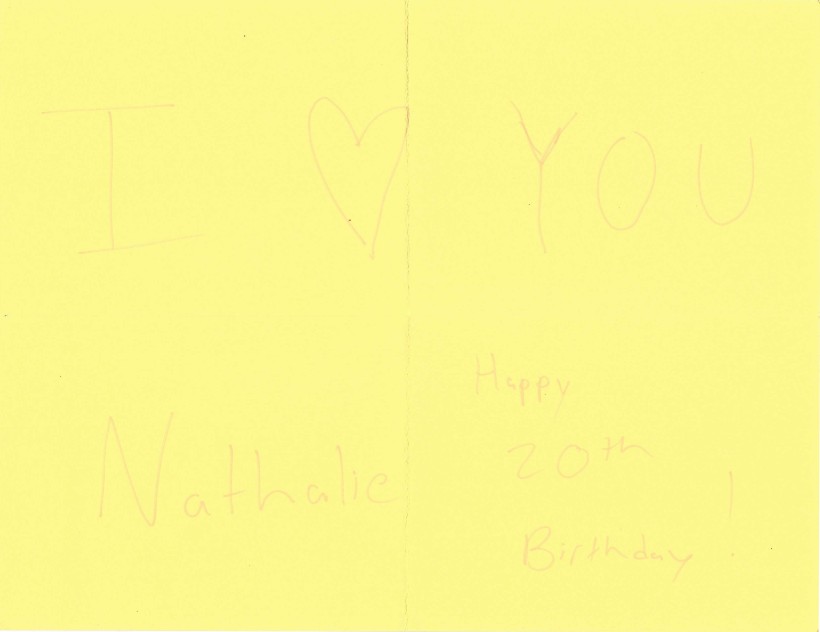 I ♥ YOU
Nathalie
Happy
20th
Birthday!